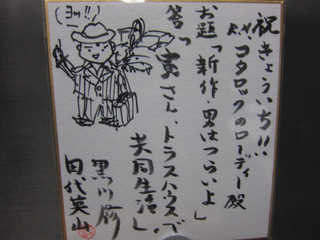 祝きょういち!!!
R.N.コタロックのローディー殿
お題「新作・男はつらいよ」
答「寅さん、トラスハウスで
共同生活」
田代英山